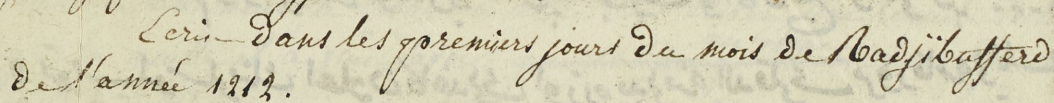 Ecrit dans les premiers jours du mois de Radjibufferd
de l'année 1212.